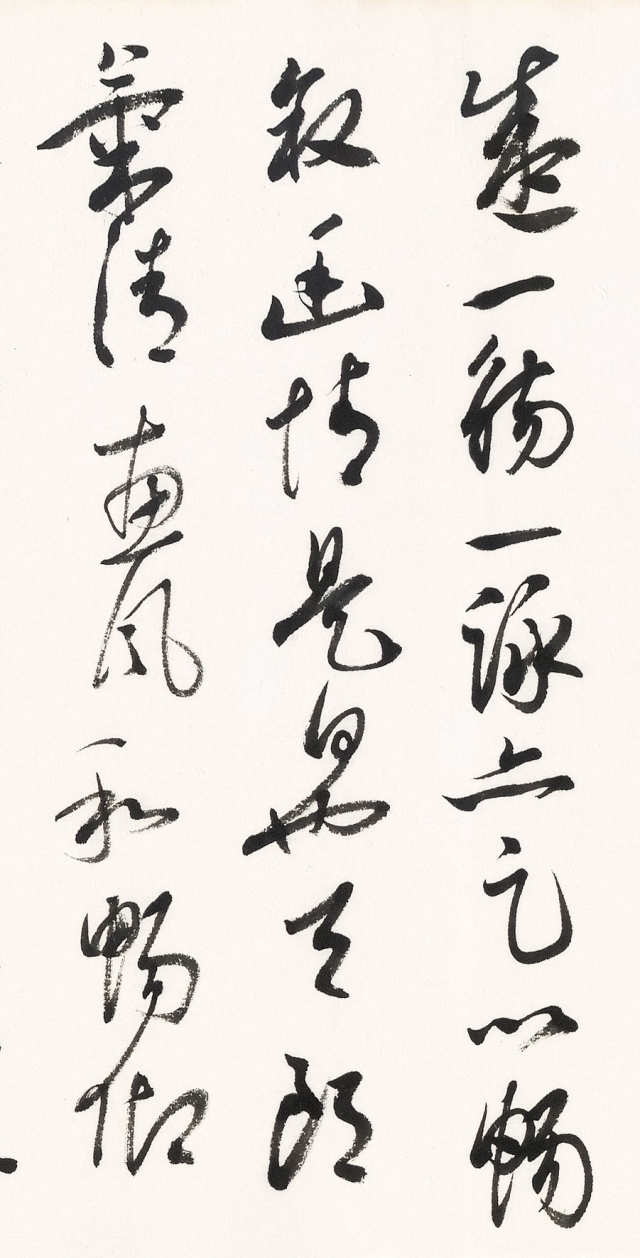 盛一觴一詠亦足以暢
叙幽情是日也天朗
氣清惠風和暢仰